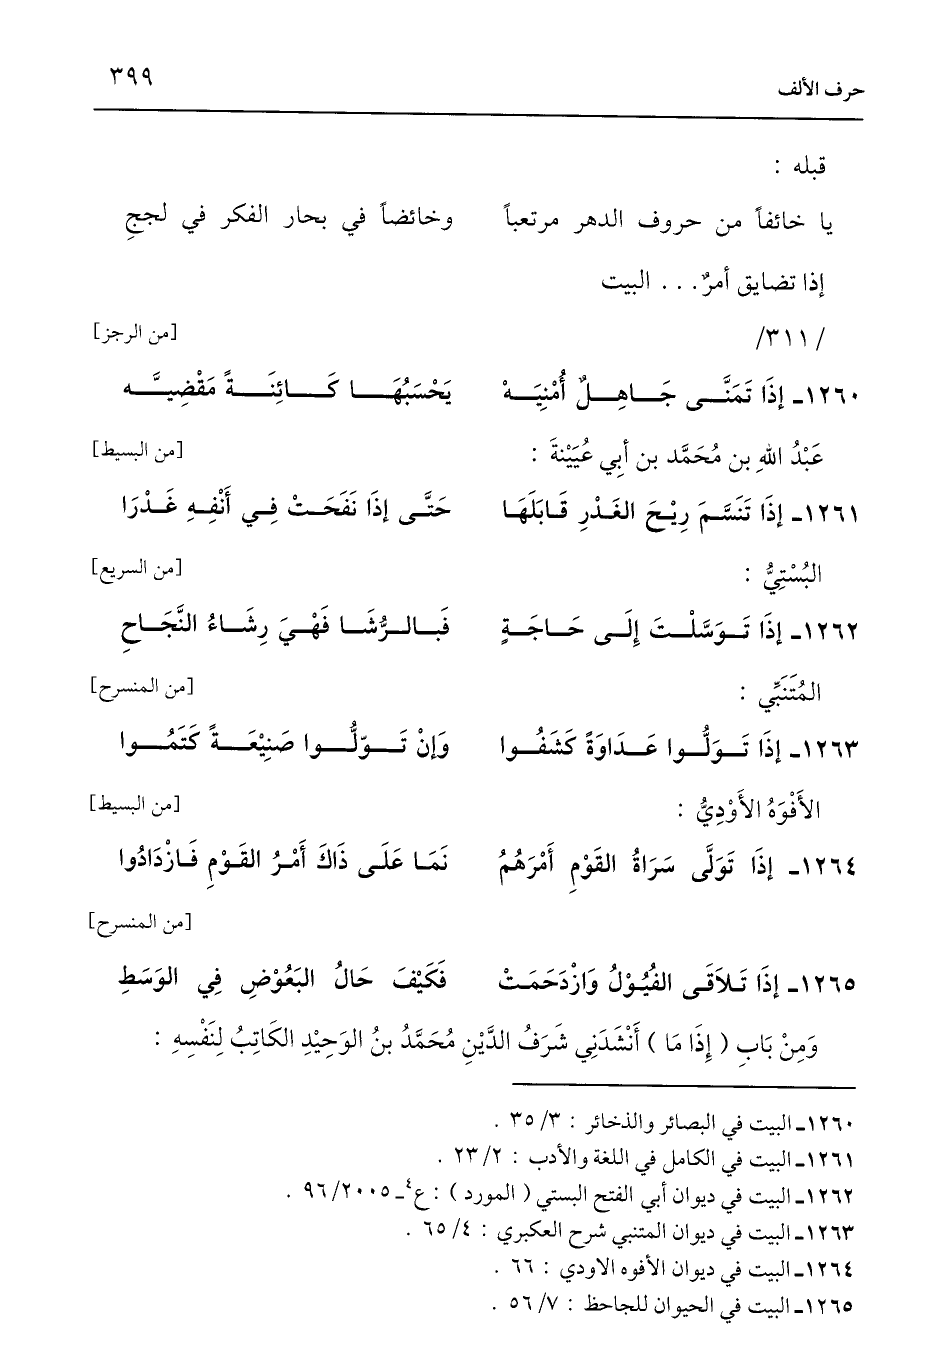 حرف الألف ٣٩٩
قبله :
يا خائفاً من حروف الدهر مرتعباً وخائضاً في بحار الفكر في لججِ
إذا تضايق أمرٌ. . . البيت
/٣١١/ [من الرجز]
١٢٦٠ـ إذَا تَمَنَّـى جَـاهِـلٌ أُمْنِيَـهْ يَحْسَبُهَـا كَـائِنَـةً مَقْضِيَّـه
عَبْدُ اللهِ بن مُحَمَّد بن أبِي عُيَيْنةَ : [من البسيط]
١٢٦١ـ إذَا تَنَسَّمَ رِيْحَ الغَدْرِ قَـابَلَهَـا حَتَّـى إذَا نَفَحَـتْ فِـي أنْفِـهِ غَـدْرَا
البُسْتِيُّ : [من السريع]
١٢٦٢ـ إذَا تَـوَسَّلْـتَ إلَـى حَـاجَـةٍ فَبـالـرُّشَـا فَهْـيَ رِشَـاءُ النَّجَـاحِ
المُتَنَبِّي : [من المنسرح]
١٢٦٣ـ إذَا تَـوَلُّـوا عَـدَاوَةً كَشَفُـوا وَإنْ تَـوّلُّـوا صَنِيْعَـةً كَتَمُـوا
الأَفْوَهُ الأَوْدِيُّ : [من البسيط]
١٢٦٤ـ إذَا تَوَلَّى سَرَاةُ القَوْمِ أَمْرَهُمُ نَمَـا عَلَـى ذَاكَ أَمْـرُ القَـوْمِ فَـازْدَادُوا
[من المنسرح]
١٢٦٥ـ إذَا تَـلاَقَـى الفُيُـوْلُ وَازْدَحَمَـتْ فَكَيْفَ حَالُ البَعُوْضِ فِي الوَسَطِ
وَمِنْ بَابِ ( إذَا مَا ) أَنْشَدَنِي شَرَفُ الدَّيْنِ مُحَمَّدُ بنُ الوَحِيْدِ الكَاتِبُ لِنَفْسِهِ :
١٢٦٠ـ البيت في البصائر والذخائر : ٣/ ٣٥ .
١٢٦١ـ البيت في الكامل في اللغة والأدب : ٢/ ٢٣ .
١٢٦٢ـ البيت في ديوان أبي الفتح البستي ( المورد ) : ع٤ـ ٢٠٠٥/ ٩٦ .
١٢٦٣ـ البيت في ديوان المتنبي شرح العكبري : ٤/ ٦٥ .
١٢٦٤ـ البيت في ديوان الأفوه الاودي : ٦٦ .
١٢٦٥ـ البيت في الحيوان للجاحظ : ٧/ ٥٦ .